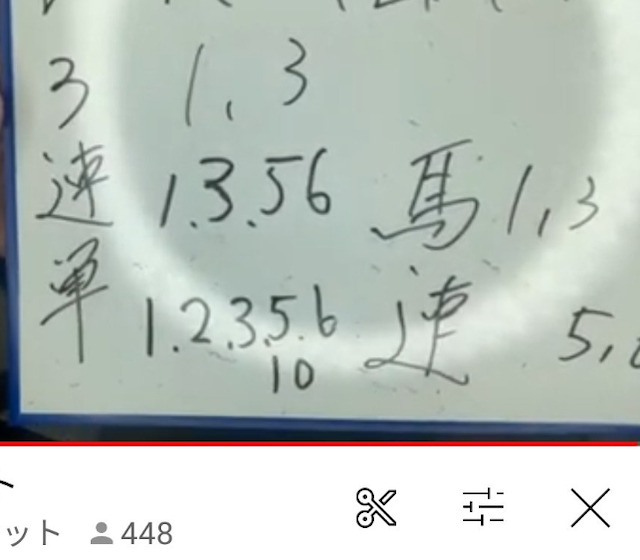 3 1, 3
連 1.3.56 馬 1,3
単 1.2.3.5.6 連 5,
10
ット 448